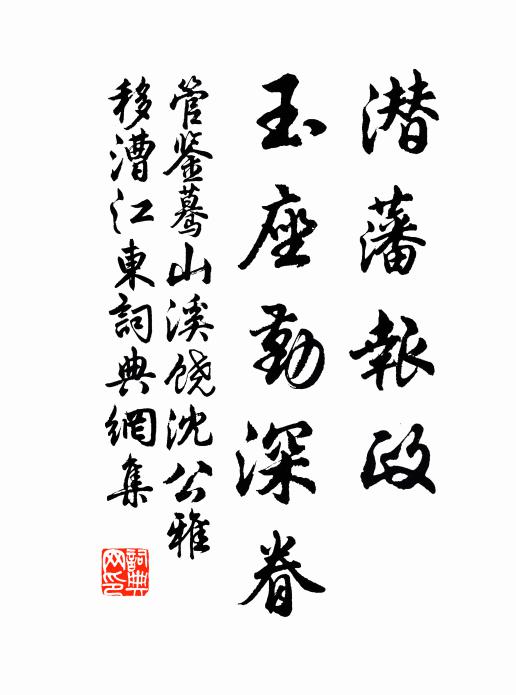 潜藩報政
玉座勤深眷
管鉴蓦山溪饶沈公雅
移漕江東詞典網集
詞典网印